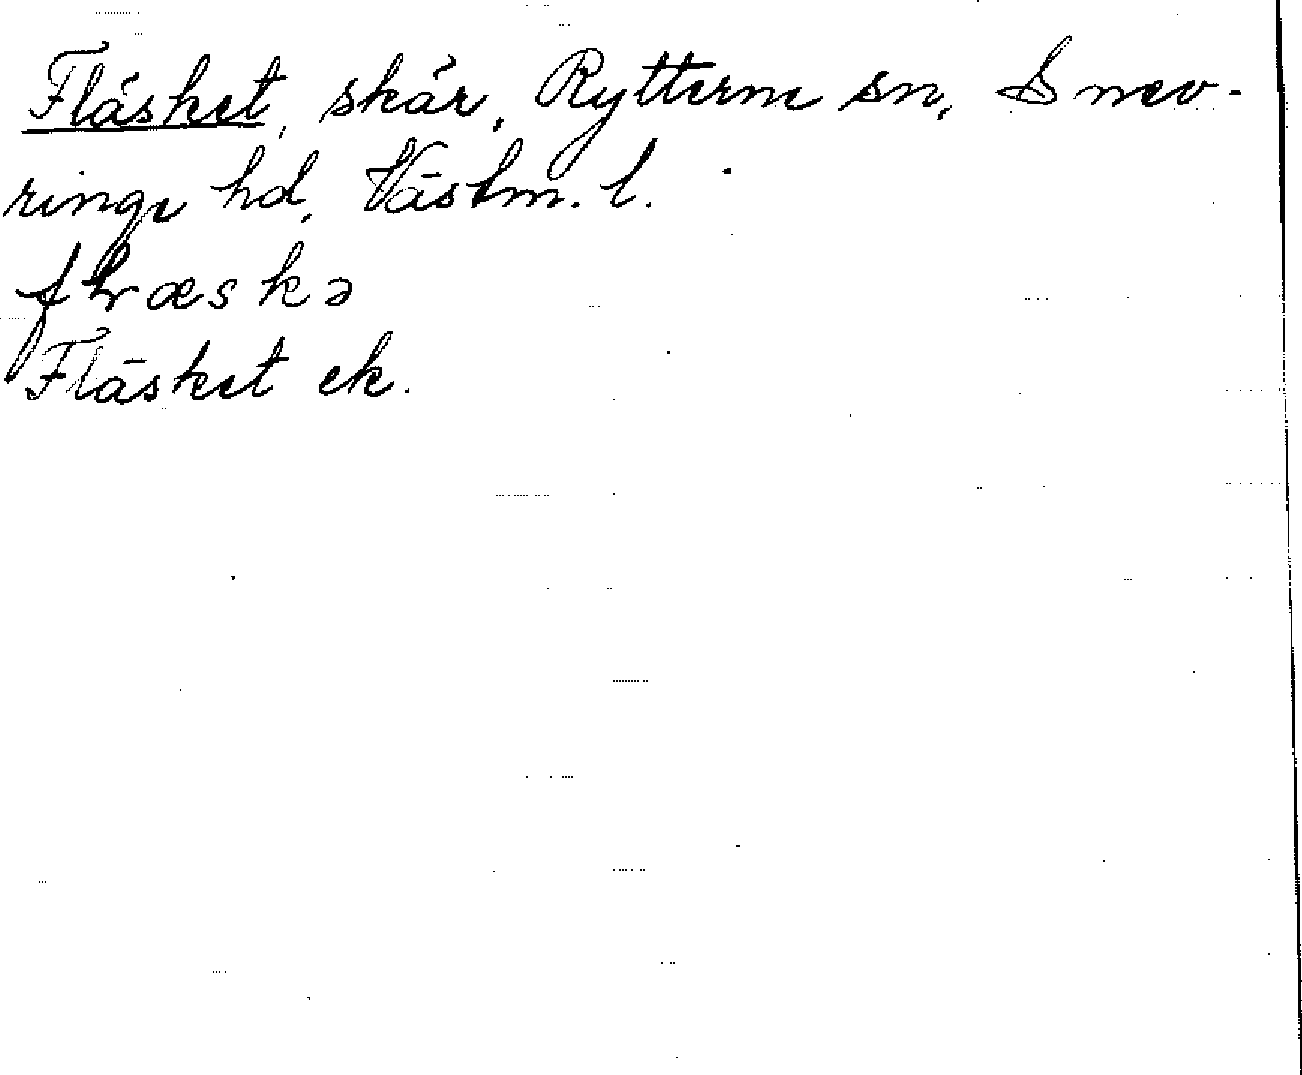 Fläsket, skär, Rytterne sn, Snev-
ringe hd, Västm. l.
Fläsket ek.